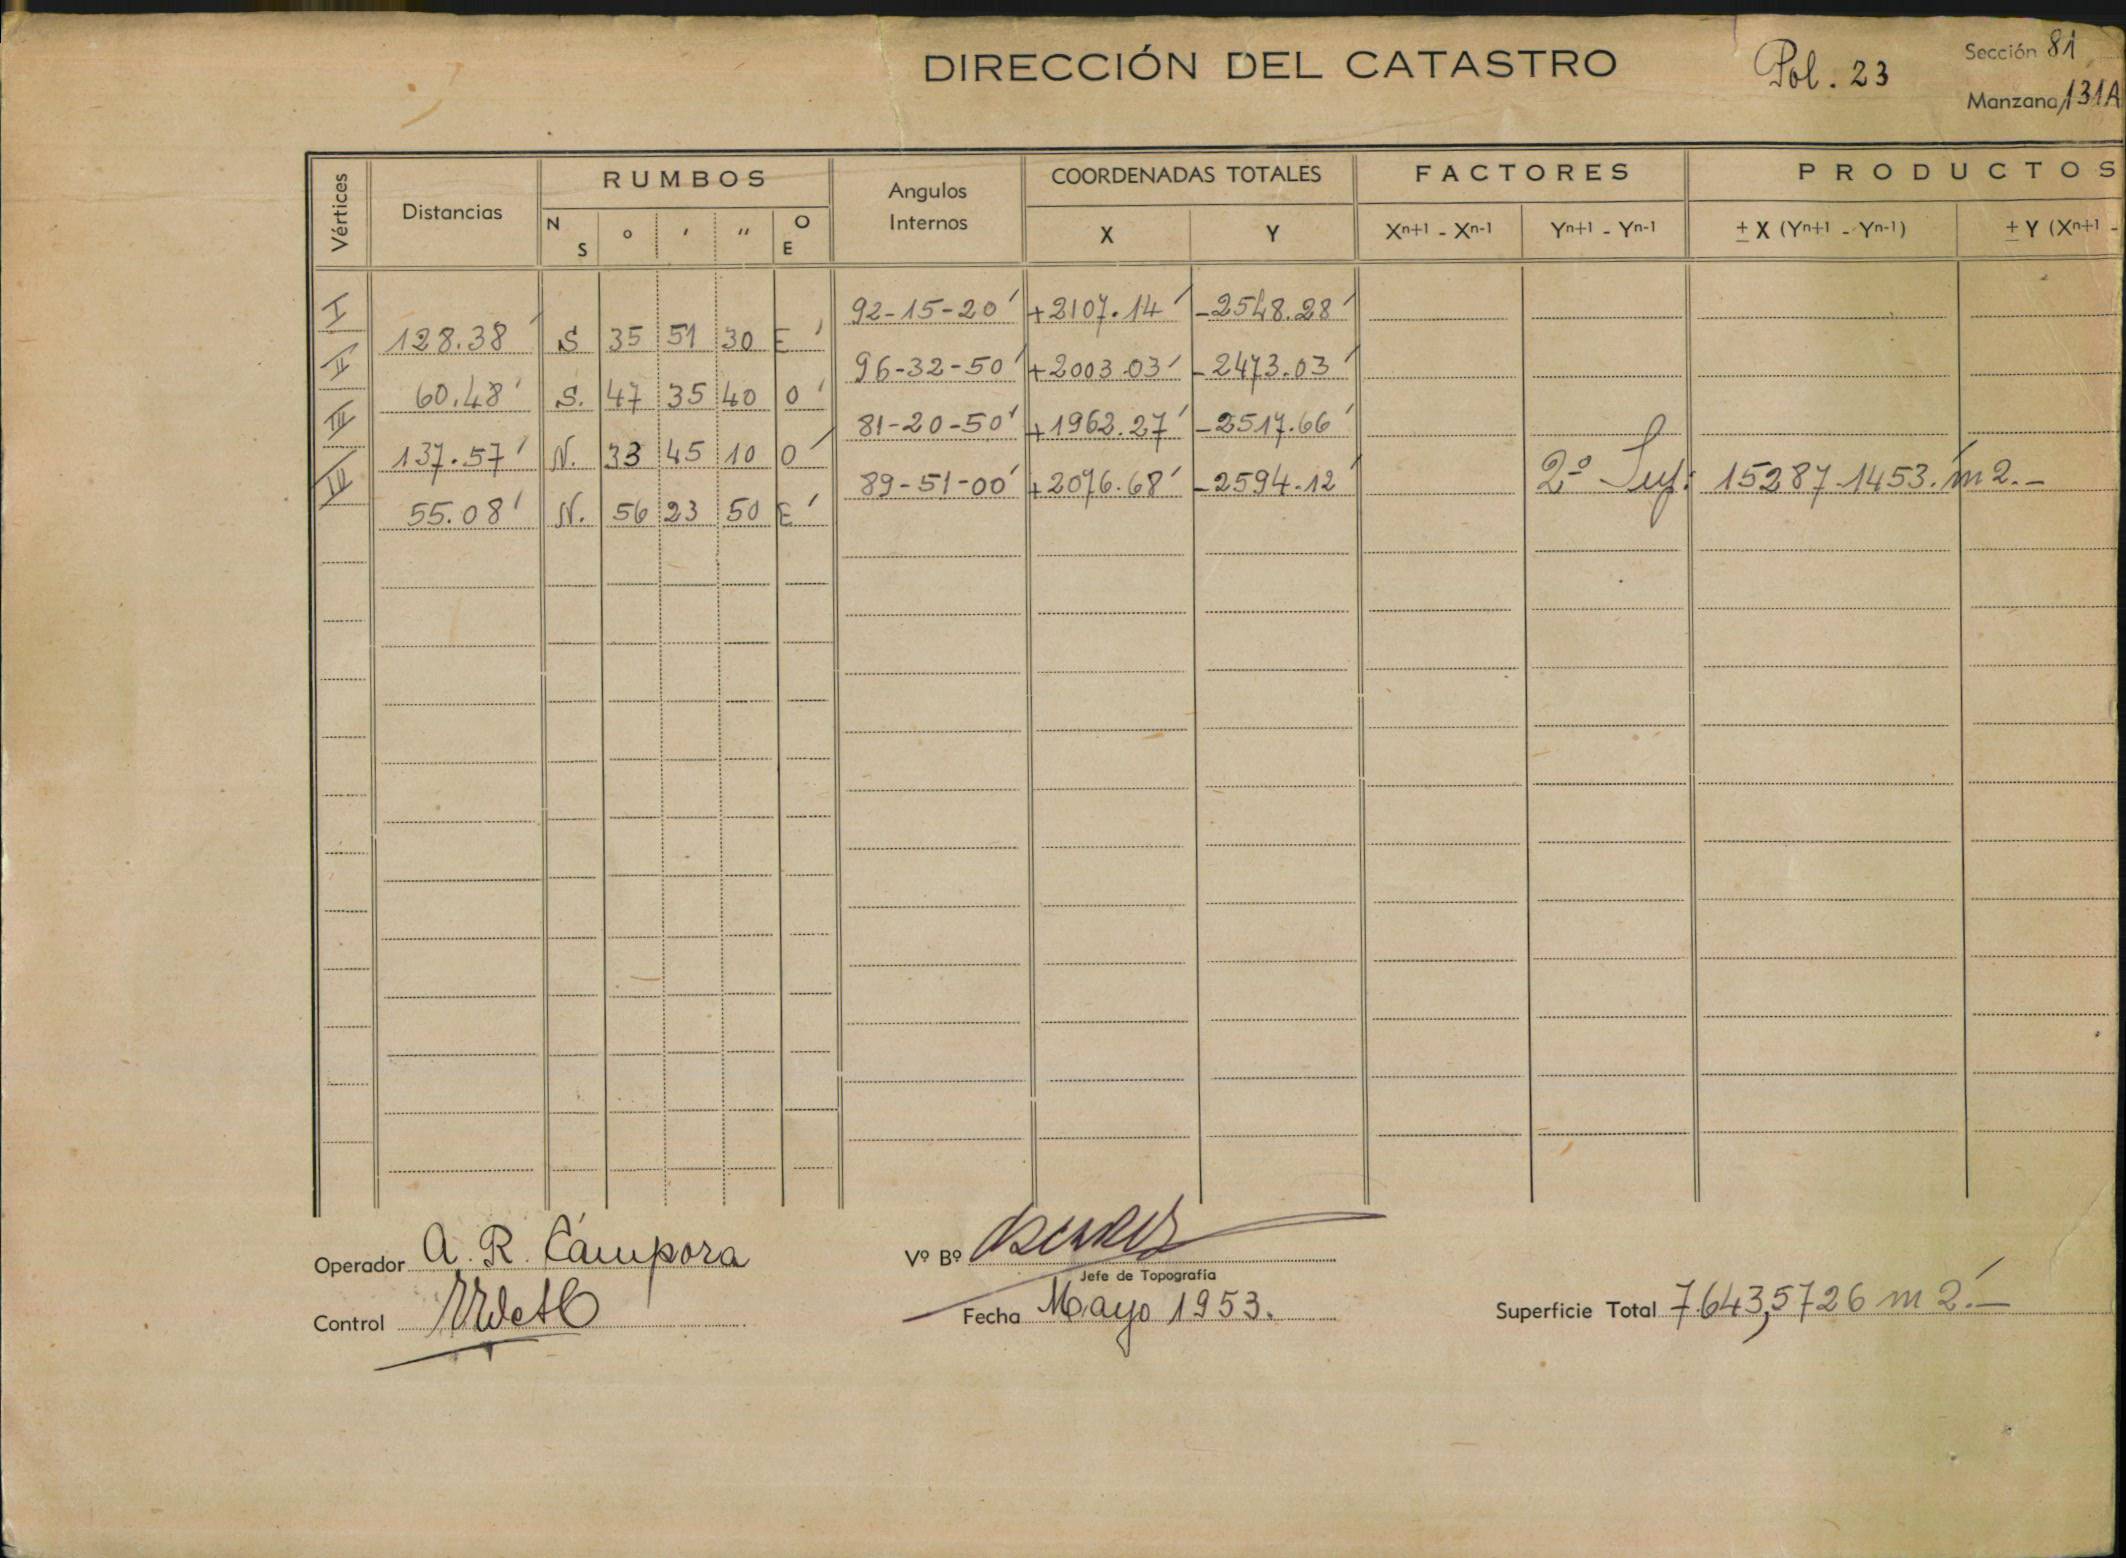 DIRECCIÓN DEL CATASTRO
Pol. 23
Sección 81
Manzana 131A
Vértices
Distancias
RUMBOS
N S
° ' "
O E
Angulos Internos
COORDENADAS TOTALES
X Y
FACTORES
Xn+1 - Xn-1 Yn+1 - Yn-1
PRODUCTOS
± X (Yn+1 - Yn-1) ± Y (Xn+1 -
I 92-15-20' +2107.14' -2548.28'
128.38' S 35 51 30 E'
II 96-32-50' +2003.03' -2473.03'
60.48' S. 47 35 40 O'
III 81-20-50' +1962.27' -2517.66'
137.57' N. 33 45 10 O'
IV 89-51-00' +2076.68' -2594.12' 2º Sup: 15287.1453. m2.-
55.08' N. 56 23 50 E'
Operador A. R. Cámpora
Vº Bº
Jefe de Topografía
Control
Fecha Mayo 1953.
Superficie Total 7.643,5726 m2.-